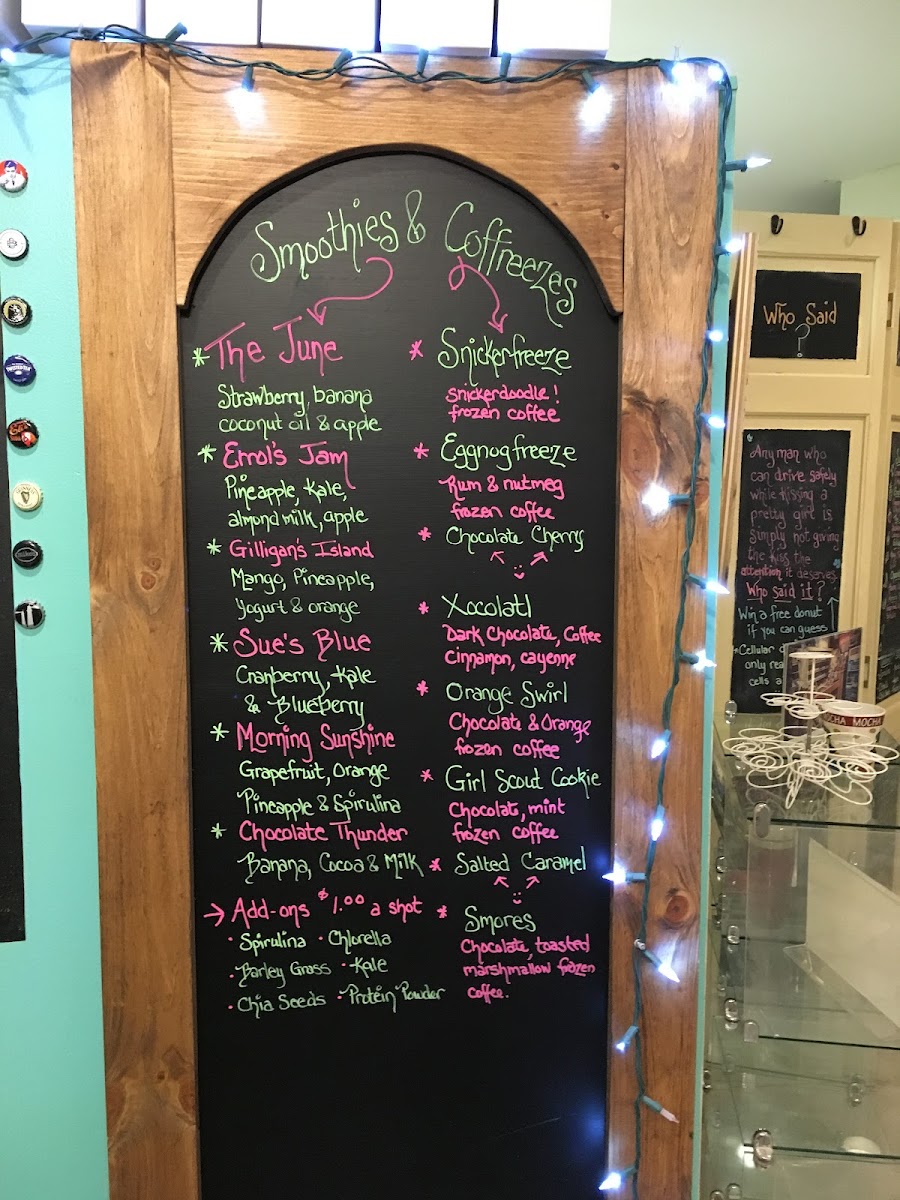 Smoothies & Coffreezes
* The June
Strawberry, banana
coconut oil & apple
* Errol's Jam
Pineapple, Kale,
almond milk, apple
* Gilligan's Island
Mango, Pineapple,
Yogurt & orange
* Sue's Blue
Cranberry, Kale
& Blueberry
* Morning Sunshine
Grapefruit, Orange
Pineapple & Spirulina
* Chocolate Thunder
Banana, Cocoa & Milk
→ Add-ons $1.00 a shot
· Spirulina · Chlorella
· Barley Grass · Kale
· Chia Seeds · Protein Powder
* Snickerfreeze
snickerdoodle!
frozen coffee
* Eggnogfreeze
Rum & nutmeg
frozen coffee
* Chocolate Cherry
* Xocolatl
Dark Chocolate, Coffee
Cinnamon, cayenne
* Orange Swirl
Chocolate & Orange
frozen coffee
* Girl Scout Cookie
Chocolat, mint
frozen coffee
* Salted Caramel
* Smores
Chocolate, toasted
marshmallow frozen
coffee.
Who Said
?
Any man who
can drive safely
while kissing a
pretty girl is
simply not giving
the kiss the
attention it deserves.
Who said it?
Win a free donut
if you can guess
*Cellular
only rea
cells a
MOCHA MOCHA